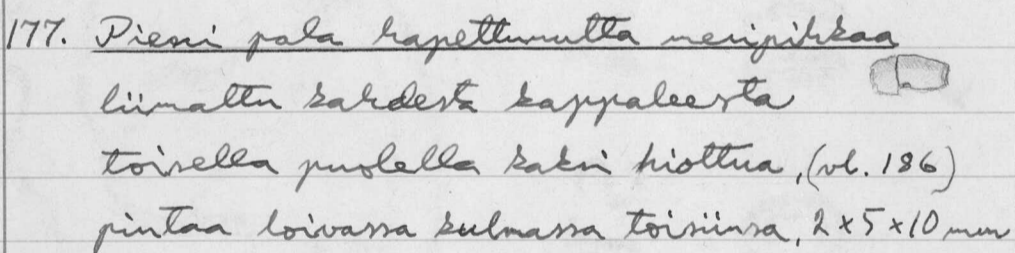 177. Pieni pala hapettunutta meripihkaa
liimattu kahdesta kappaleesta
toisella puolella kaksi hiottua, (vl. 186)
pintaa loivassa kulmassa toisiinsa, 2x5x10 mm